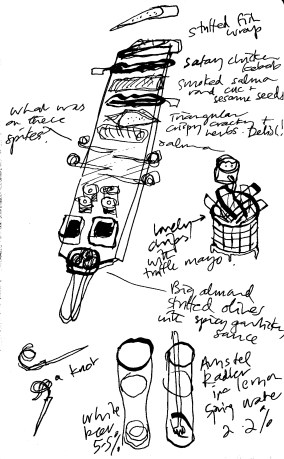 stuffed fish
wrap
satay chicken
kebab
smoked salmon
and cuc +
sesame seeds
Triangular
crispy crackers +
herbs. Belis!
salmon
what was
on these
spikes?
Lovely
chips
with
truffle mayo.
Big almond
stuffed olives
with spicy garlicky
sauce
a knot
white
beer
5.5%
Amstel
Radler
ipa lemon
Spring water
2.2%